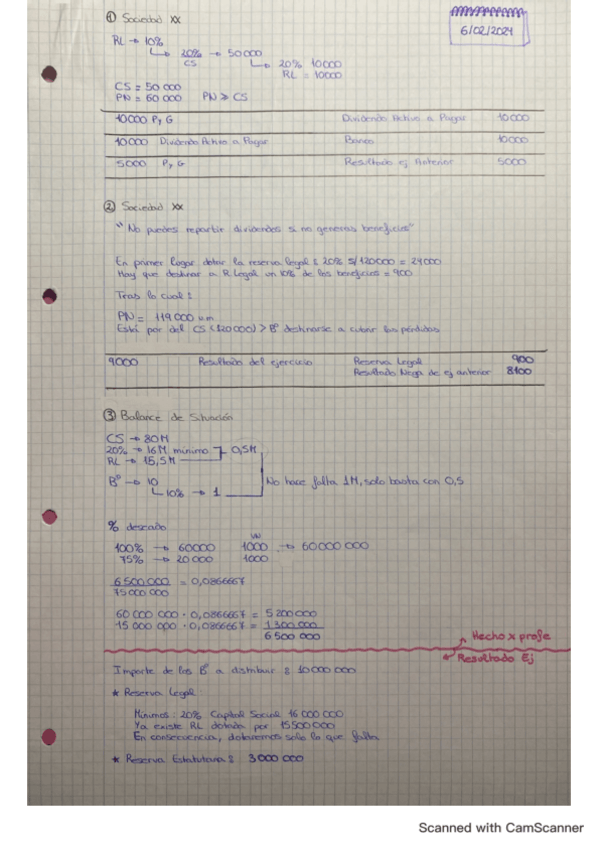 ① Sociedad XX
6/02/2021
RL → 10%
↳ 20% → 50000
CS
↳ 20% 10000
RL = 10000
CS = 50 000
PN = 60 000 PN ≥ CS
10000 P y G Dividendo Activo a Pagar 10000
10000 Dividendo Activo a Pagar Banco 10000
5000 P y G Resultado ej Anterior 5000
② Sociedad XX
"No puedes repartir dividendos si no generas beneficios"
En primer lugar dotar la reserva legal: 20% s/120000 = 24000
Hay que destinar a R. Legal un 10% de los beneficios = 900
Tras lo cual:
PN = 119 000 um
Está por del CS (120 000) > Bº destinarse a cubrir las pérdidas
9000 Resultado del ejercicio Reserva Legal 900
Resultado Nega de ej anterior 8100
③ Balance de Situación
CS → 80M
20% → 16M mínimo
RL → 15,5M
0,5M
Bº → 10
↳ 10% → 1
No hace falta 1M, solo basta con 0,5
% deseado
VN
100% → 60000 1000 → 60000 000
75% → 20 000 1000
6 500 000 = 0,0866667
75 000 000
60 000 000 · 0,0866667 = 5 200 000
15 000 000 · 0,0866667 = 1 300 000
6 500 000
Hecho x profe
Resultado Ej
Importe de los Bº a distribuir: 10 000 000
* Reserva Legal:
Mínimos: 20% Capital Social 16 000 000
Ya existe RL dotada por 15 500 000
En consecuencia, dotaremos solo lo que falta
* Reserva Estatutaria: 3 000 000
Scanned with CamScanner